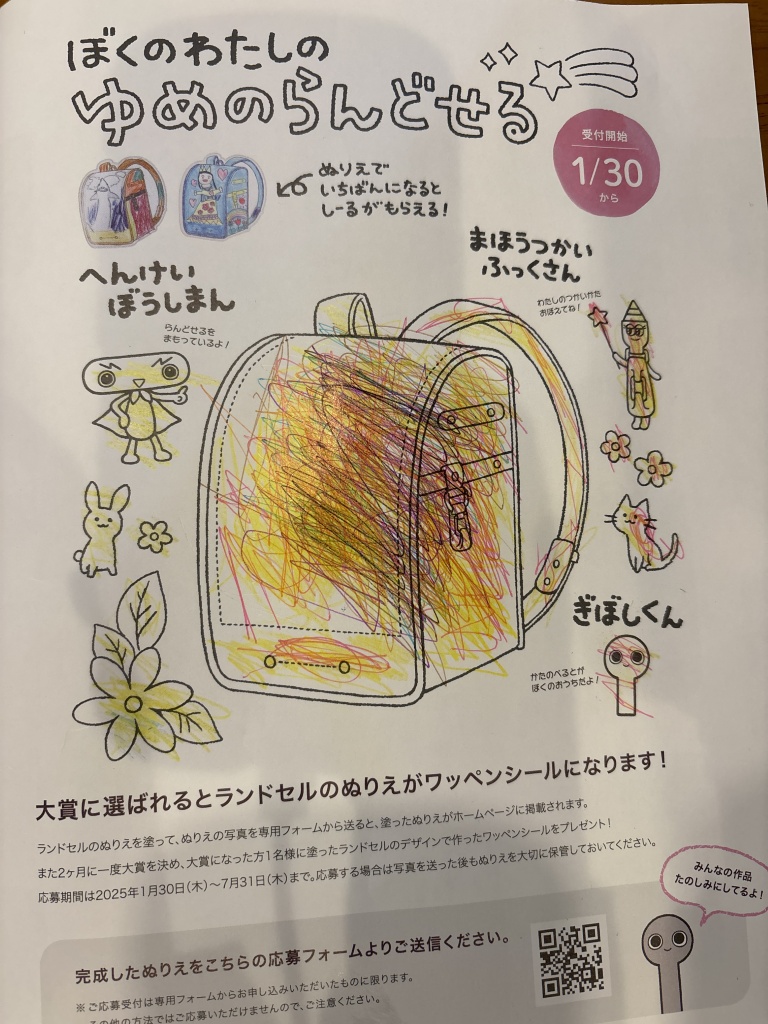 ぼくのわたしの
ゆめのらんどせる
受付開始
1/30
から
ぬりえで
いちばんになると
しーるがもらえる!
まほうつかい
ふっくさん
わたしのつかいかた
おぼえてね!
へんけい
ぼうしまん
らんどせるを
まもっているよ!
ぎぼしくん
かたのべるとが
ぼくのおうちだよ!
大賞に選ばれるとランドセルのぬりえがワッペンシールになります!
ランドセルのぬりえを塗って、ぬりえの写真を専用フォームから送ると、塗ったぬりえがホームページに掲載されます。
また2ヶ月に一度大賞を決め、大賞になった方1名様に塗ったランドセルのデザインで作ったワッペンシールをプレゼント!
応募期間は2025年1月30日(木)〜7月31日(木)まで。応募する場合は写真を送った後もぬりえを大切に保管しておいてください。
みんなの作品
たのしみにしてるよ!
完成したぬりえをこちらの応募フォームよりご送信ください。
※ご応募受付は専用フォームからお申し込みいただいたものに限ります。
その他の方法ではご応募いただけませんので、ご注意ください。